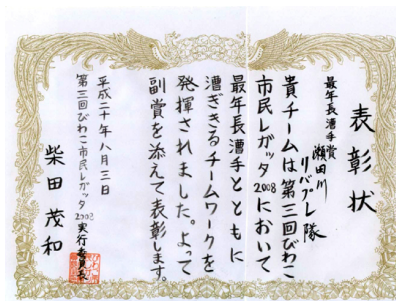 表彰状
最年長漕手賞
瀬田川
リバプレ隊
貴チームは第三回びわこ
市民レガッタ2008において
最年長漕手とともに
漕ぎきるチームワークを
発揮されました。よって
副賞を添えて表彰します。
平成二十年八月三日
第三回びわこ市民レガッタ2008実行委員長
柴田茂和